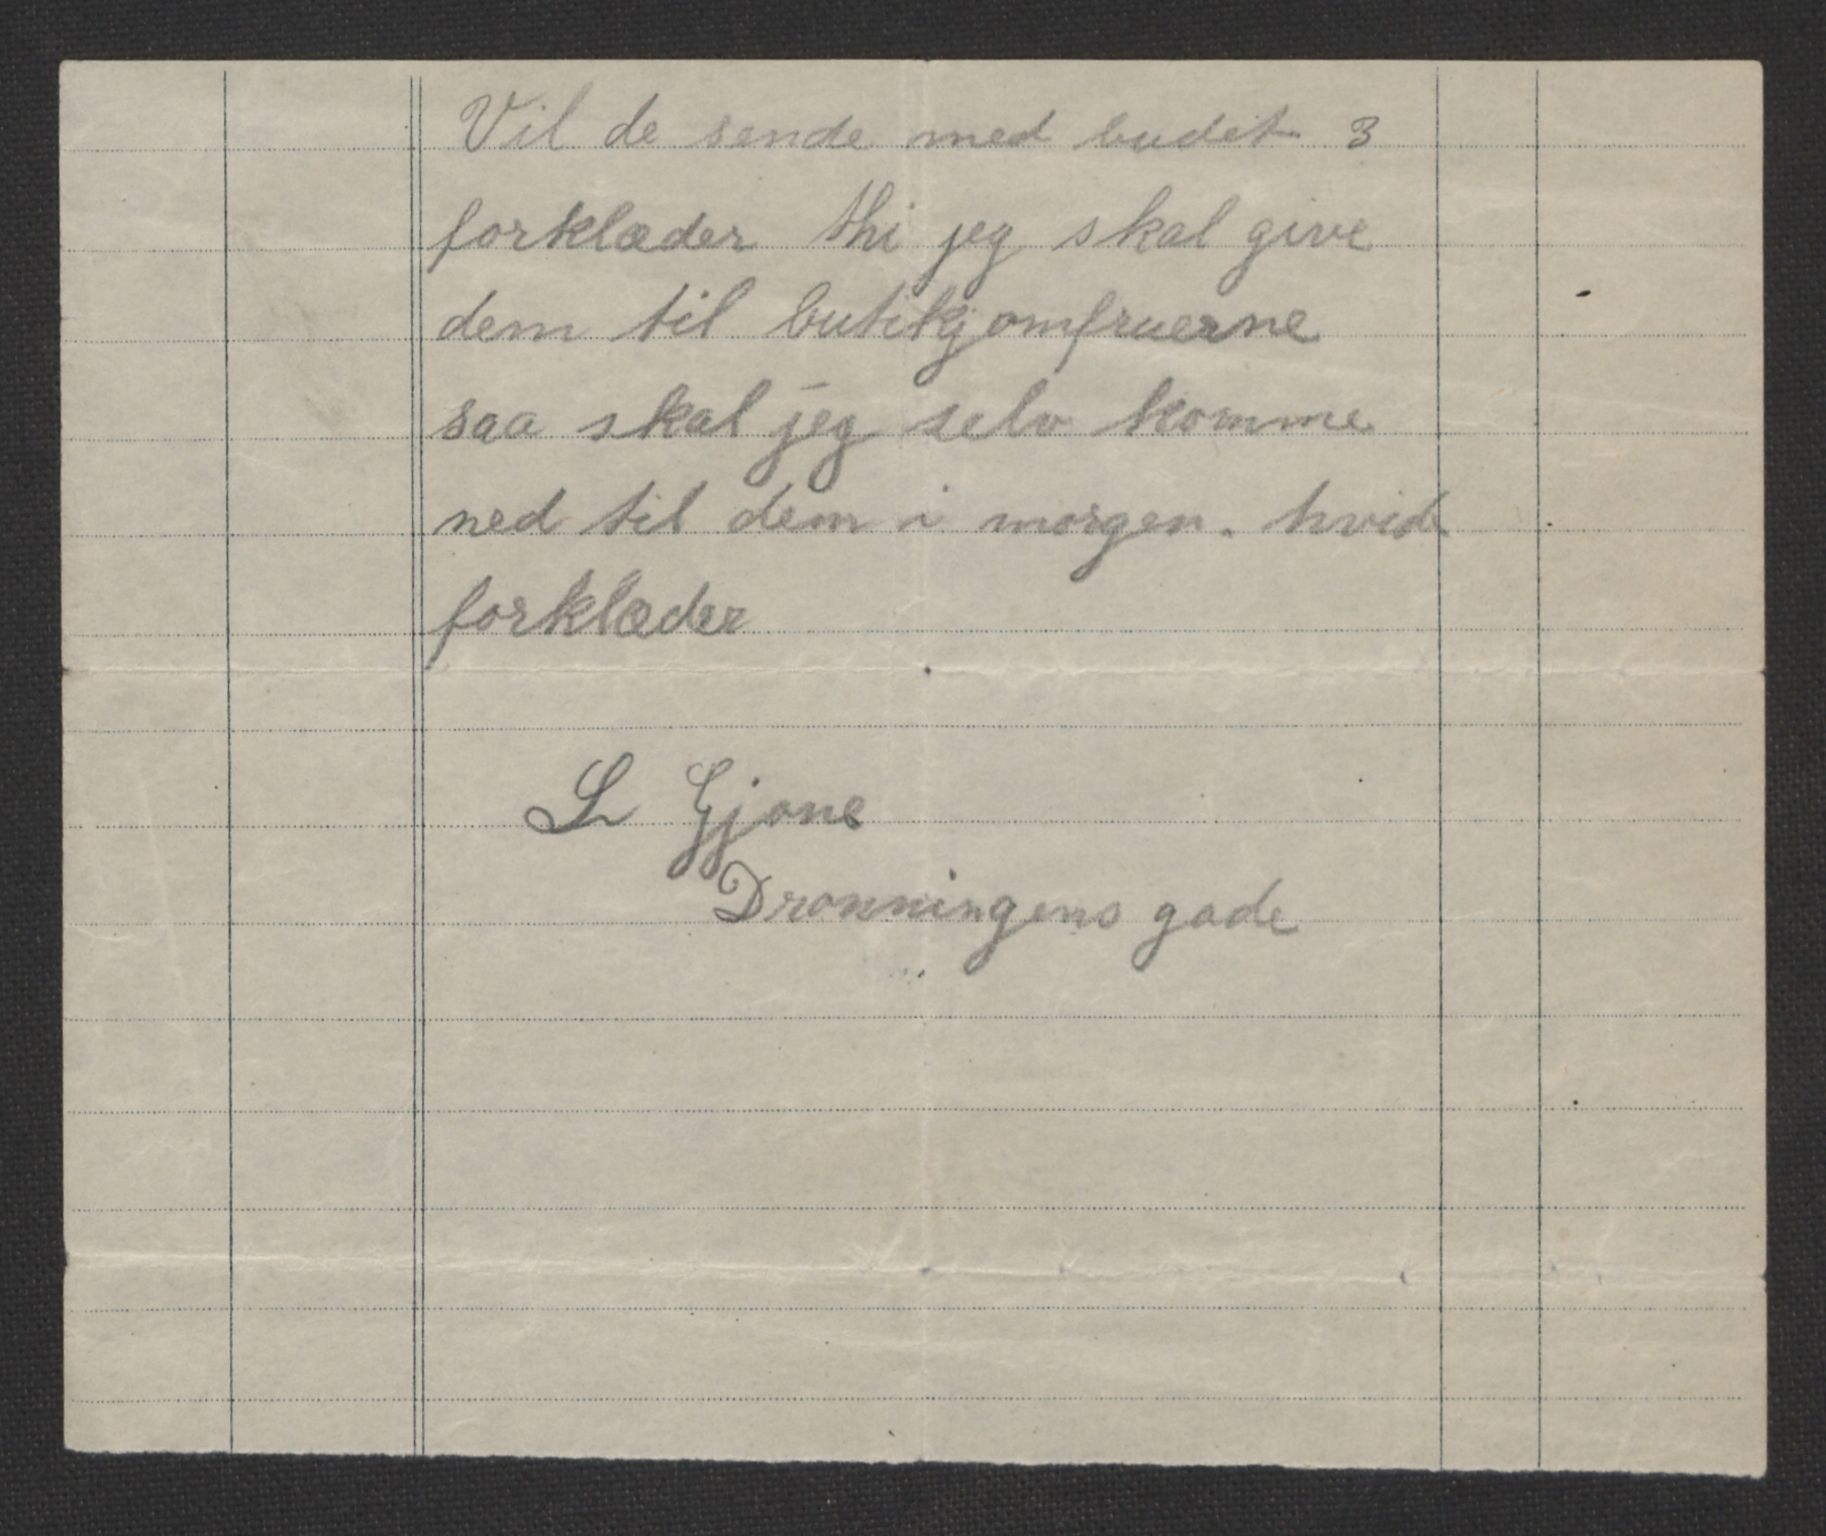 Vil de sende med budet 3
forklæder thi jeg skal give
dem til butikjomfruerne
saa skal jeg selv komme
ned til dem i morgen. hvide
forklæder
L Gjone
Dronningens gade